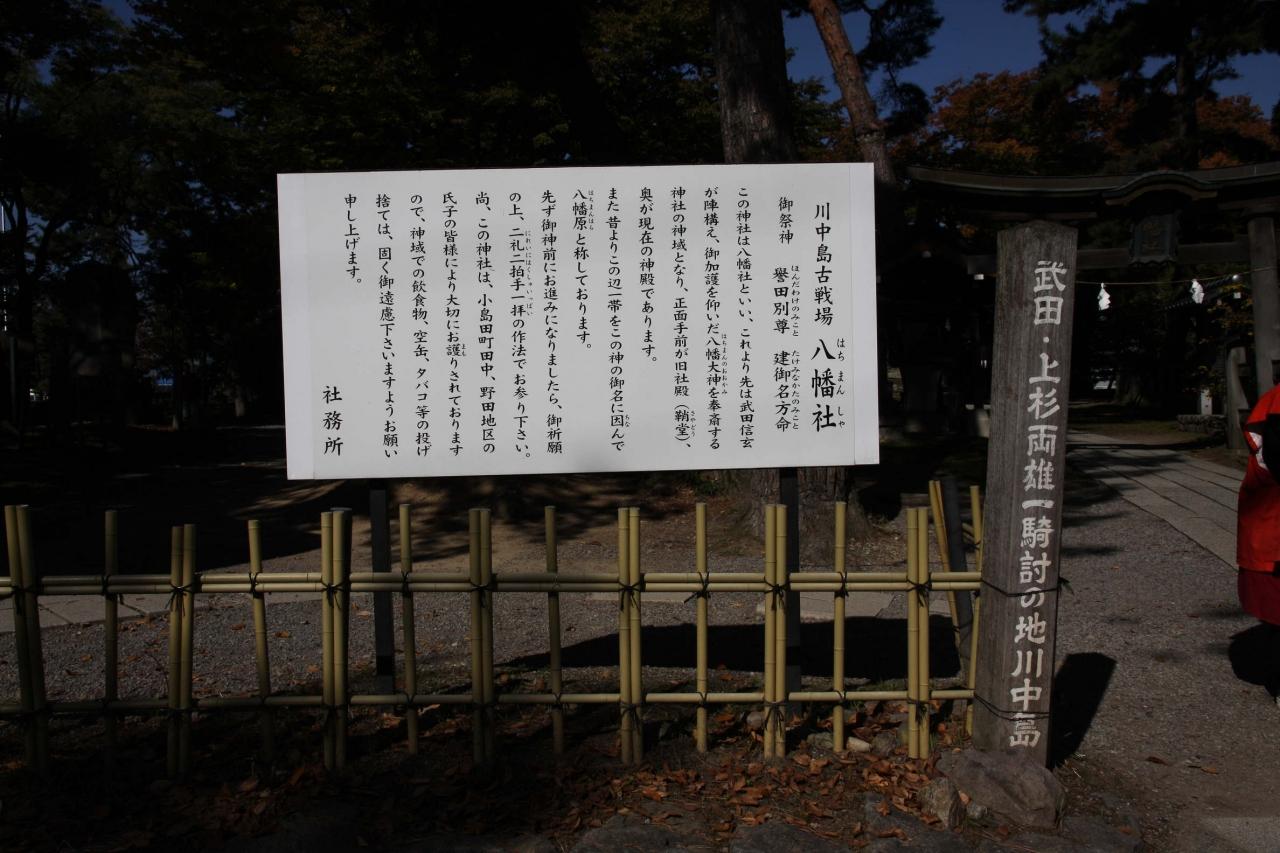 川中島古戦場 八幡社
はちまんしや
御祭神 誉田別尊 建御名方命
ほんだわけのみこと たけみなかたのみこと
この神社は八幡社といい、これより先は武田信玄
が陣構え、御加護を仰いだ八幡大神を奉斎する
はちまんのおおかみ
神社の神域となり、正面手前が旧社殿(鞘堂)、
さやどう
奥が現在の神殿であります。
また昔よりこの辺一帯をこの神の御名に因んで
ちな
八幡原と称しております。
はちまんはら
先ず御神前にお進みになりましたら、御祈願
の上、二礼二拍手一拝の作法でお参り下さい。
にれいにはくしゅいっぱい
尚、この神社は、小島田町田中、野田地区の
氏子の皆様により大切にお護りされております
まも
ので、神域での飲食物、空缶、タバコ等の投げ
捨ては、固く御遠慮下さいますようお願い
申し上げます。
社務所
武田・上杉両雄一騎討の地川中島